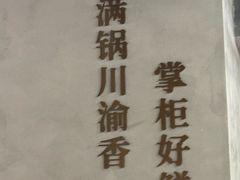 满锅川渝香
掌柜好